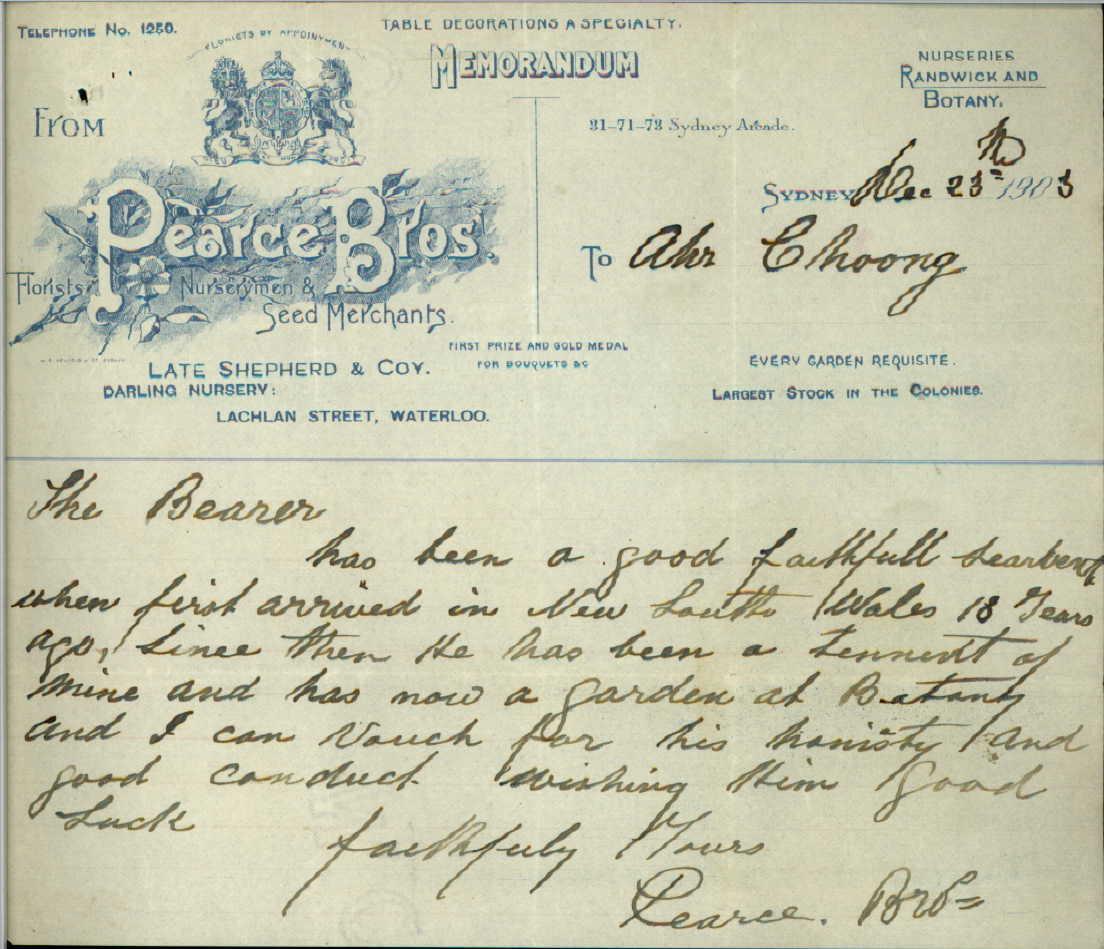 TELEPHONE No. 1250.
TABLE DECORATIONS A SPECIALTY.
FLORISTS BY APPOINTMENT
MEMORANDUM
NURSERIES
RANDWICK AND
BOTANY.
FROM
31-71-73 Sydney Arcade.
SYDNEY Dec 23th 1903
Pearce Bros.
To Ahr Choong
Florists Nurserymen &
Seed Merchants.
FIRST PRIZE AND GOLD MEDAL
FOR BOUQUETS &C
LATE SHEPHERD & COY.
DARLING NURSERY:
LACHLAN STREET, WATERLOO.
EVERY GARDEN REQUISITE.
LARGEST STOCK IN THE COLONIES.
The Bearer
has been a good faithfull searbent
when first arrived in New South Wales 18 Years
ago, Since then He has been a tennent of
mine and has now a garden at Botany
and I can Vouch for his honisty and
good conduct wishing Him good
Luck
faithfuly Yours
Pearce. Bros